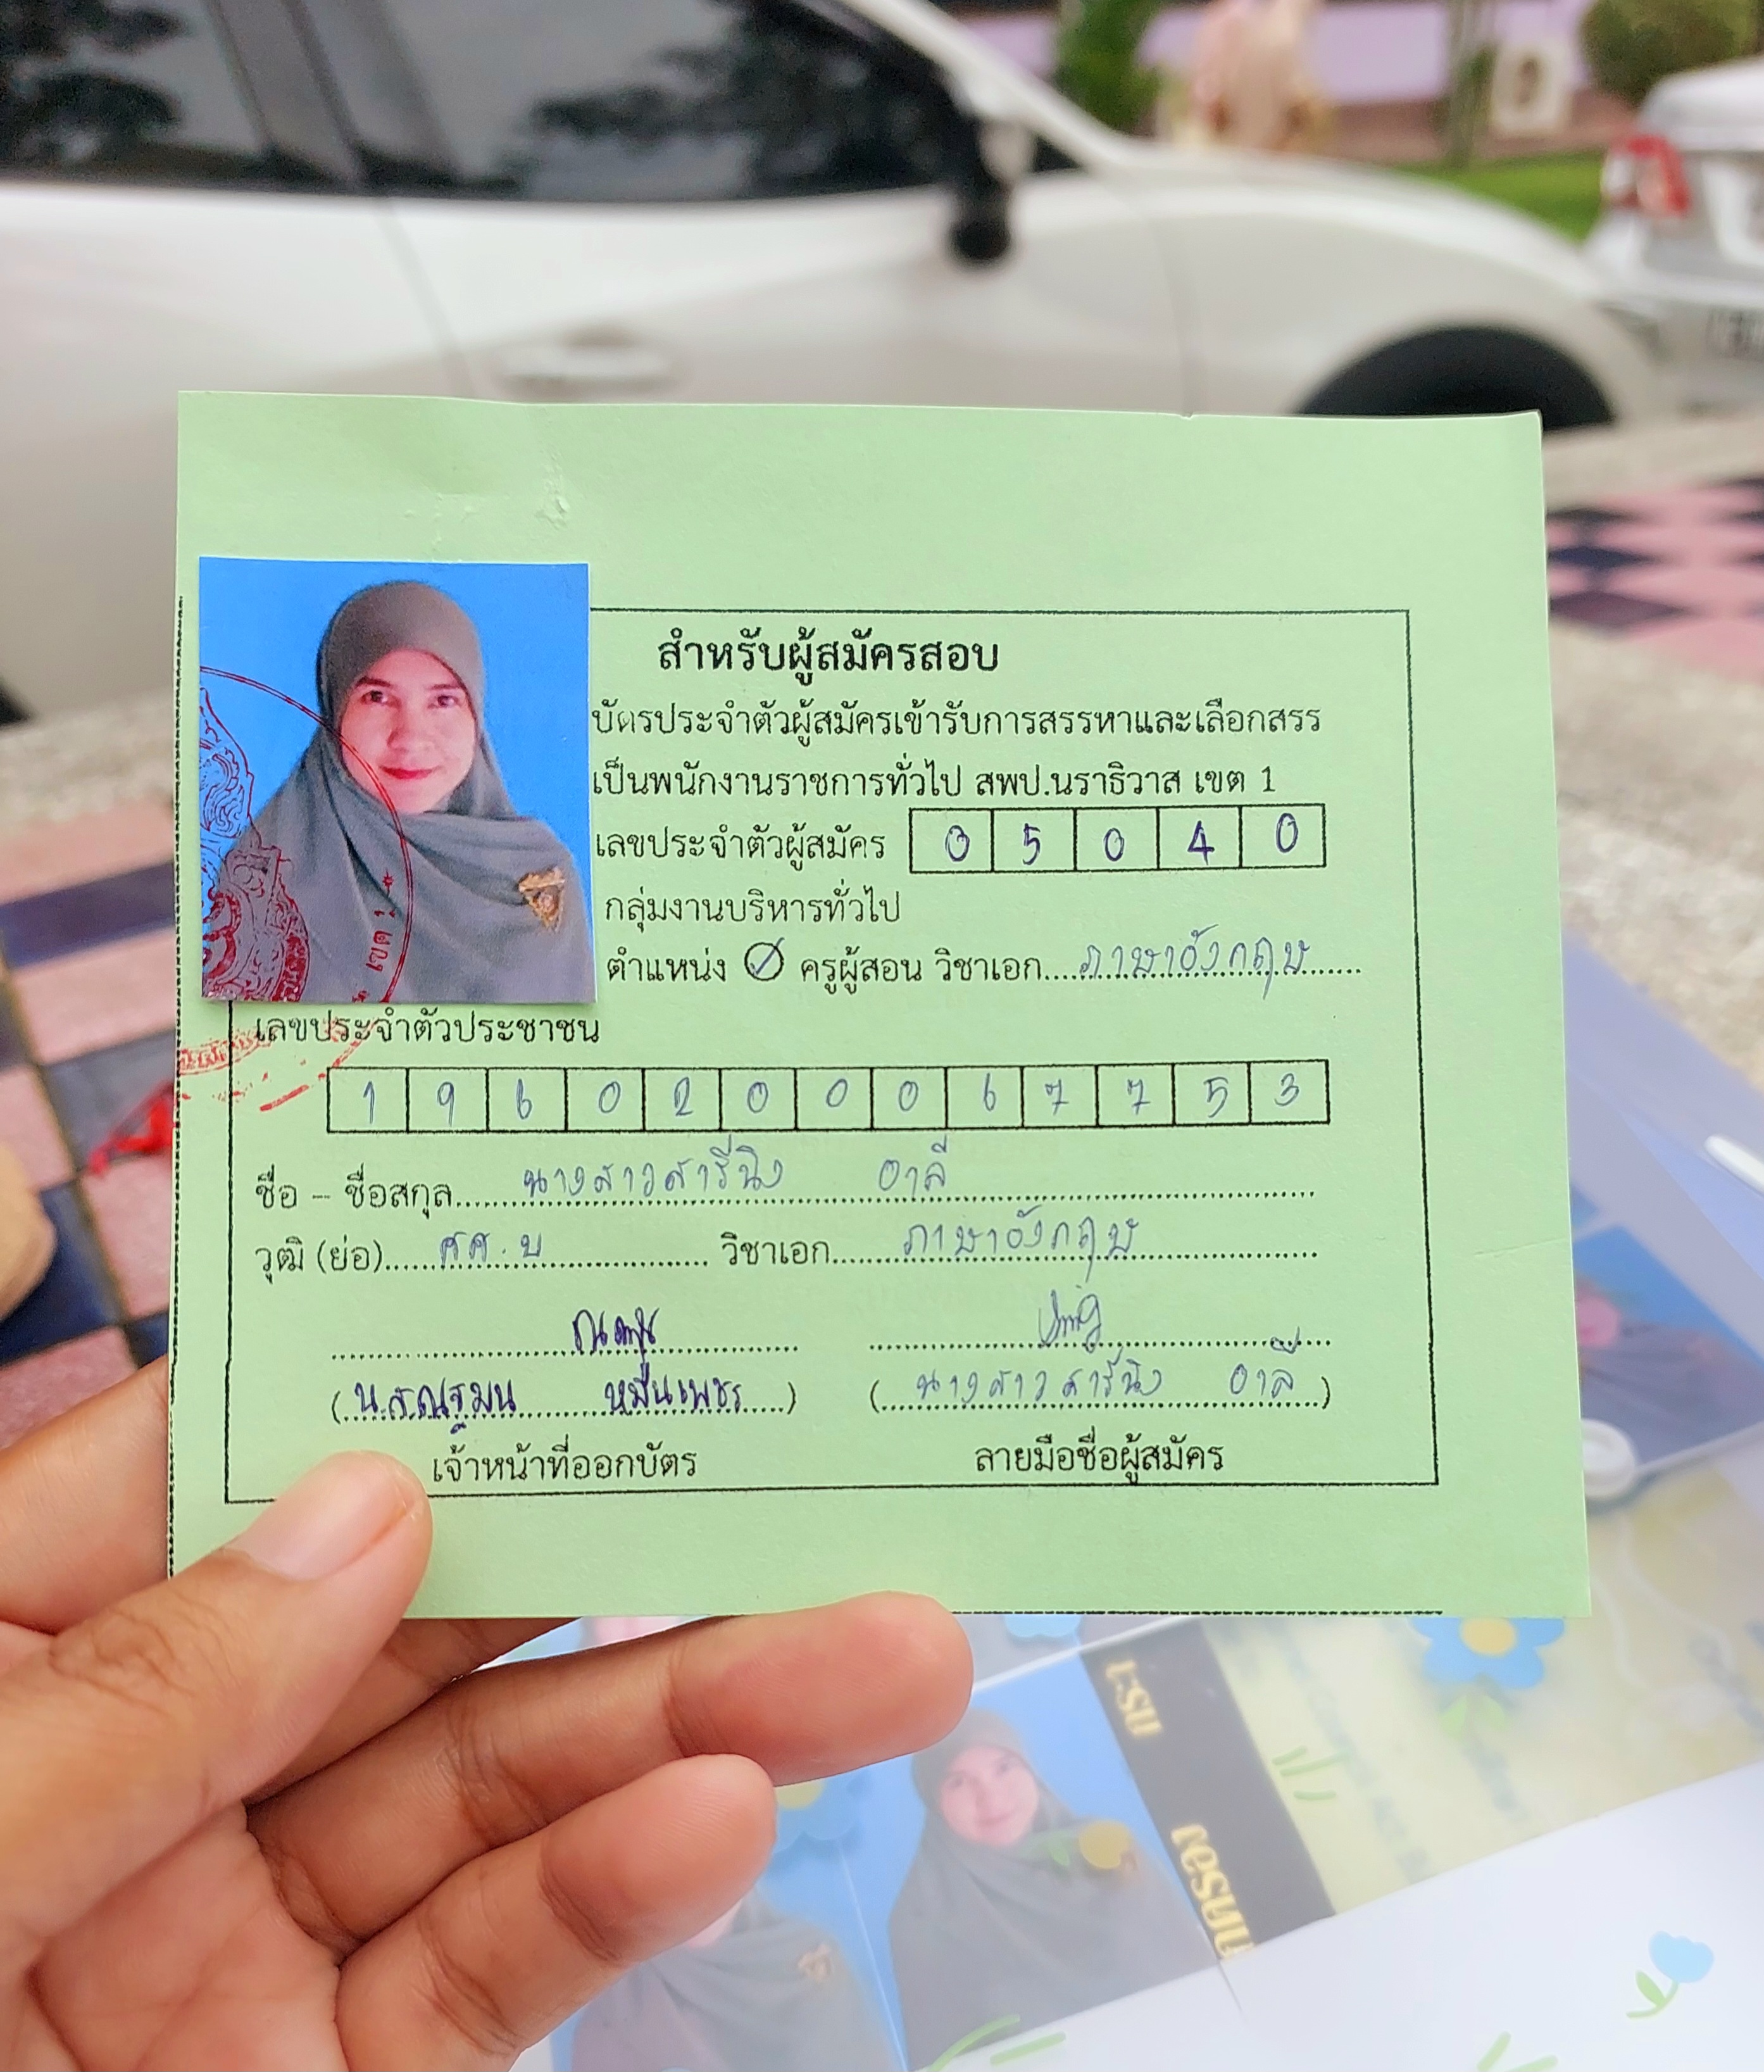 สำหรับผู้สมัครสอบ
บัตรประจำตัวผู้สมัครเข้ารับการสรรหาและเลือกสรร
เป็นพนักงานราชการทั่วไป สพป.นราธิวาส เขต 1
เลขประจำตัวผู้สมัคร 0 5 0 4 0
กลุ่มงานบริหารทั่วไป
ตำแหน่ง ครูผู้สอน วิชาเอก....ภาษาอังกฤษ......
เขต 1
เลขประจำตัวประชาชน
1 9 6 0 2 0 0 0 6 7 7 5 3
ชื่อ - ชื่อสกุล......นางสาวสารีนิง อาลี......
วุฒิ (ย่อ)......ศศ.บ...... วิชาเอก......ภาษาอังกฤษ......
(น.ส.ณฐมน หมื่นเพชร) (นางสาวสารีนิง อาลี)
เจ้าหน้าที่ออกบัตร ลายมือชื่อผู้สมัคร